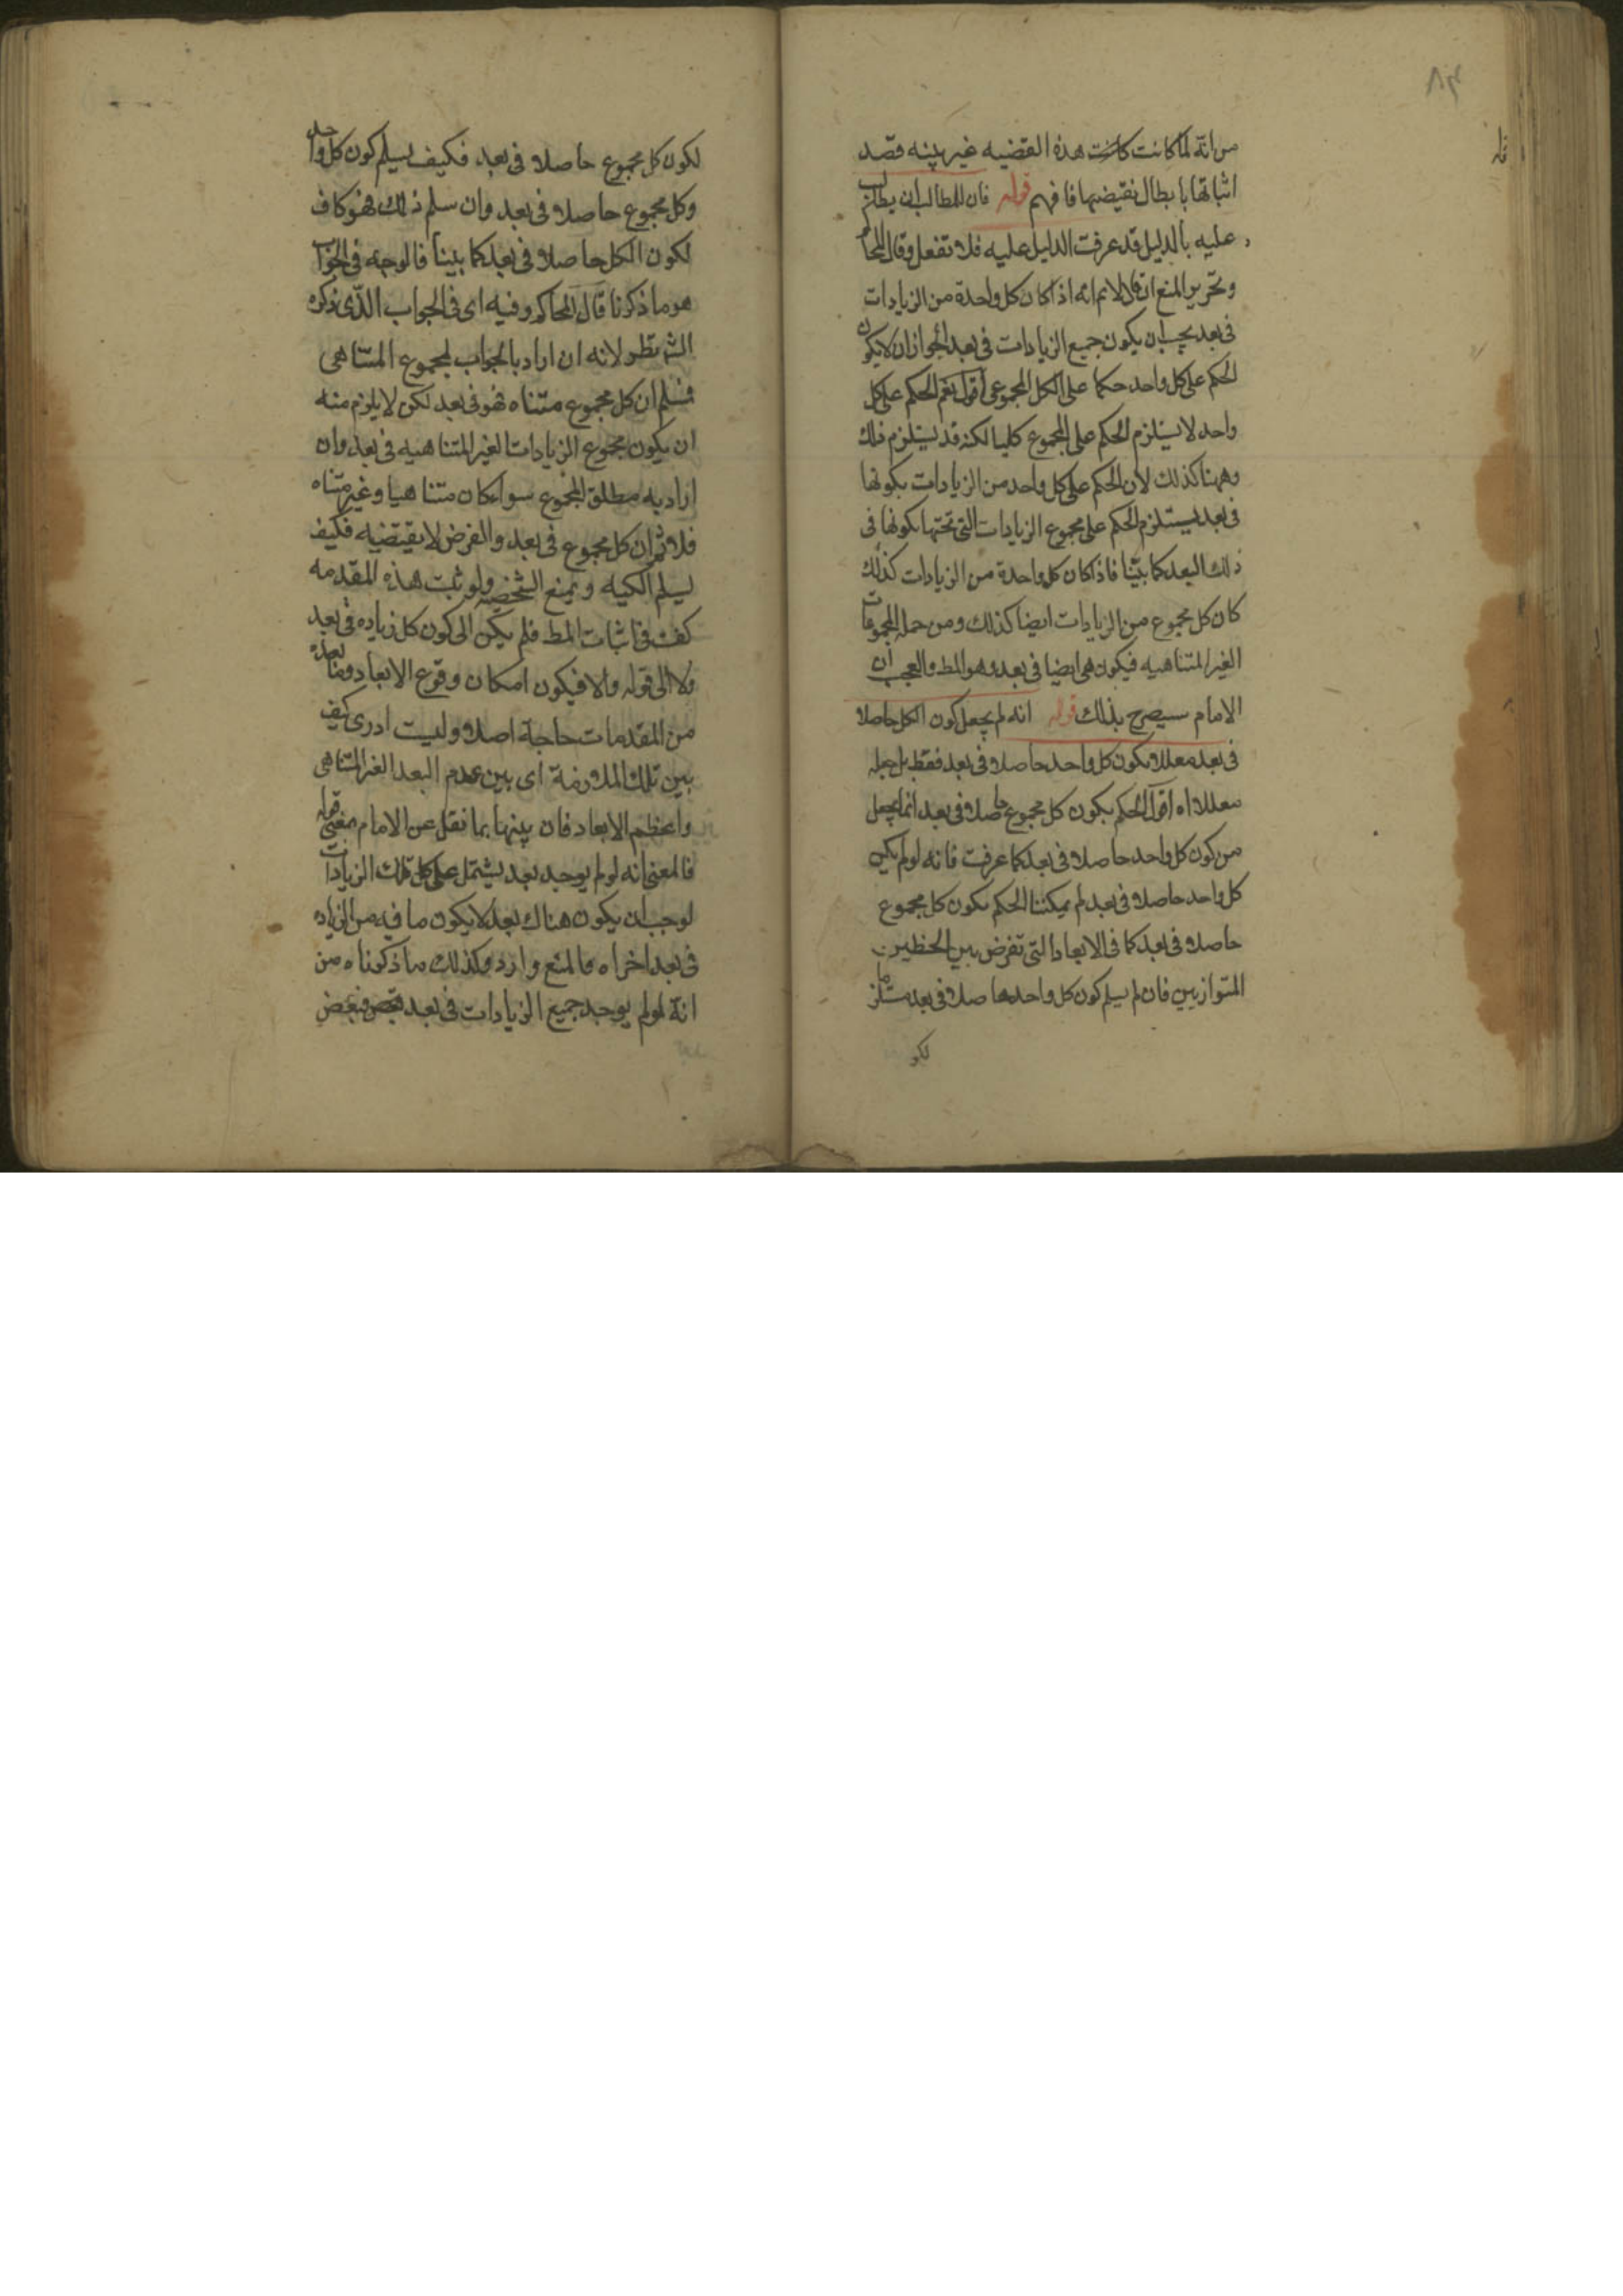 ٨٣
من انه لما كانت كانت هذه القضيه غير بينه قصد
اثباتها بابطال نقيضها فافهم قوله فان للمطالب ان يطالب
عليه بالدليل قد عرفت الدليل عليه فلا تغفل وقال المحاكم
وتحرير المنع ان قال لانم انه اذا كان كل واحدة من الزيادات
فى بعد يجب ان يكون جميع الزيادات فى بعد لجواز ان لا يكون
الحكم على كل واحد حكما على الكل المجموعى اقول نعم الحكم على كل
واحد لا يستلزم الحكم على المجموع كليا لكنه قد يستلزم ذلك
وههنا كذلك لان الحكم على كل واحد من الزيادات بكونها
فى بعد يستلزم الحكم على مجموع الزيادات التى تحتها بكونها فى
ذلك البعد كما بينا فاذا كان كل واحدة من الزيادات كذلك
كان كل مجموع من الزيادات ايضا كذلك ومن جملة المجموعات
الغير المتناهيه فيكون هى ايضا فى بعد وهو المط والعجب ان
الامام سيصرح بذلك قوله انه لم يجعل كون الكل حاصلا
فى بعد معللا بكون كل واحد حاصلا فى بعد فقط بل جعله
معللا اه اقول الحكم بكون كل مجموع حاصلا فى بعد انما يجعل
من كون كل واحد حاصلا فى بعد كما عرفت فانه لو لم يكن
كل واحد حاصلا فى بعد لم يمكننا الحكم بكون كل مجموع
حاصلا فى بعد كما فى الابعاد التى تفرض بين الخطين
المتوازيين فان لم يسلم كون كل واحد حاصلا فى بعد مستلزما
لكو
لكون كل مجموع حاصلا فى بعد فكيف يسلم كون كل واحد
وكل مجموع حاصلا فى بعد وان سلم ذلك فهو كاف
لكون الكل حاصلا فى بعد كما بينا فالوجه فى الجواب
هو ما ذكرنا قال المحاكم وفيه اى فى الجواب الذى ذكره
الش نظر لانه ان اراد بالجواب لمجموع المتناهى
فسلم ان كل مجموع متناه فهو فى بعد لكن لا يلزم منه
ان يكون مجموع الزيادات الغير المتناهيه فى بعد وان
اراد به مطلق المجموع سواء كان متناهيا وغير متناه
فلا نم ان كل مجموع فى بعد والفرض لا يقتضيه فكيف
يسلم الكليه ويمنع الشخصيه ولو ثبت هذه المقدمه
كفت فى اثبات المط فلم يكن الى كون كل زياده فى بعد
ولا الى قوله والا فيكون امكان وقوع الابعاد وما بعده
من المقدمات حاجة اصلا وليت ادرى كيف
بين تلك الملازمة اى بين عدم البعد الغير المتناهى
واعظم الابعاد فان بينها بما نقل عن الامام بمعنى قوله
فالمعنى انه لو لم يوجد بعد يشتمل على كل تلك الزيادات
لوجب ان يكون هناك بعد لا يكون ما فيه من الزياده
فى بعد اخر اه فالمنع وارد وكذلك ما ذكرناه من
انه لو لم يوجد جميع الزيادات فى بعد فبعض